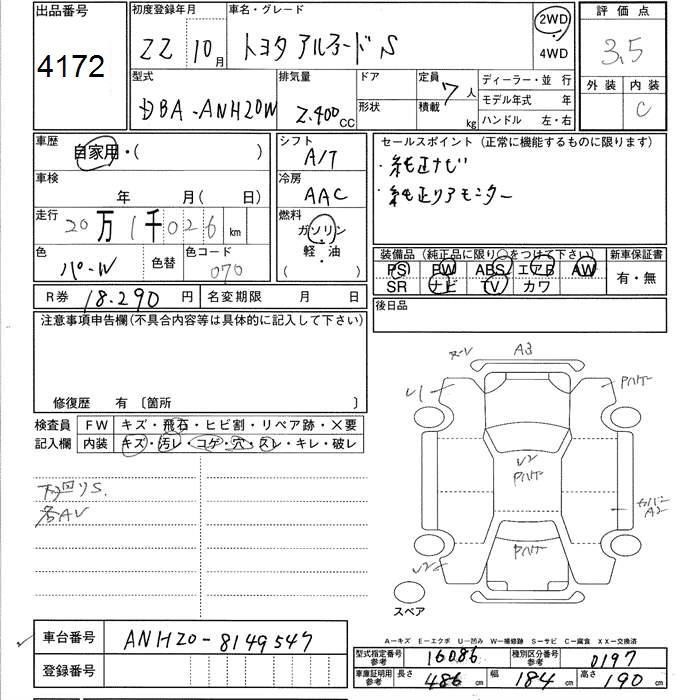 出品番号
4172
初度登録年月 車名・グレード
22 10月 トヨタ アルファード S
2WD
4WD
評価点
3.5
外装 内装
C
型式 排気量 ドア 定員 7人
DBA-ANH20W 2.400cc 形状 積載 kg
ディーラー・並 行
モデル年式 年
ハンドル 左・右
車歴
自家用・( )
車検
年 月(日)
走行
20万1千026km
色 色替 色コード
パール 070
シフト
A/T
冷房
AAC
燃料
ガソリン
軽・油
( )
セールスポイント (正常に機能するものに限ります)
・純正ナビ
・純正リアモニター
装備品 (純正品に限り○をつけて下さい) 新車保証書
PS PW ABS エアB AW 有・無
SR ナビ TV カワ
R券 18.290円 名変期限 月 日
後日品
注意事項申告欄(不具合内容等は具体的に記入して下さい)
修復歴 有 〔箇所 〕
検査員 FW キズ・飛石・ヒビ割・リペア跡・×要
記入欄 内装 キズ・汚レ・コゲ・穴・スレ・キレ・破レ
下回りS.
各AV
A3
U1
U2
A2
スペア
車台番号 ANH20-8149547
登録番号
A―キズ E―エクボ U―凹み W―補修跡 S―サビ C―腐食 XX―交換済
型式指定番号 参考 16086 種別区分番号 参考 0197
車庫証明用 参考 長さ 486cm 幅 184cm 高さ 190cm